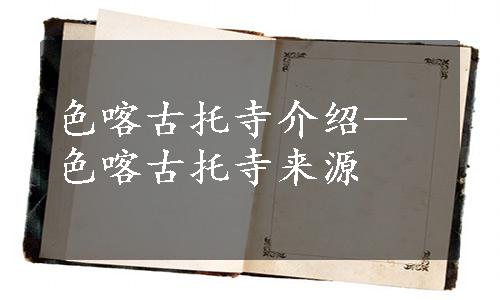 色喀古托寺介绍—
色喀古托寺来源